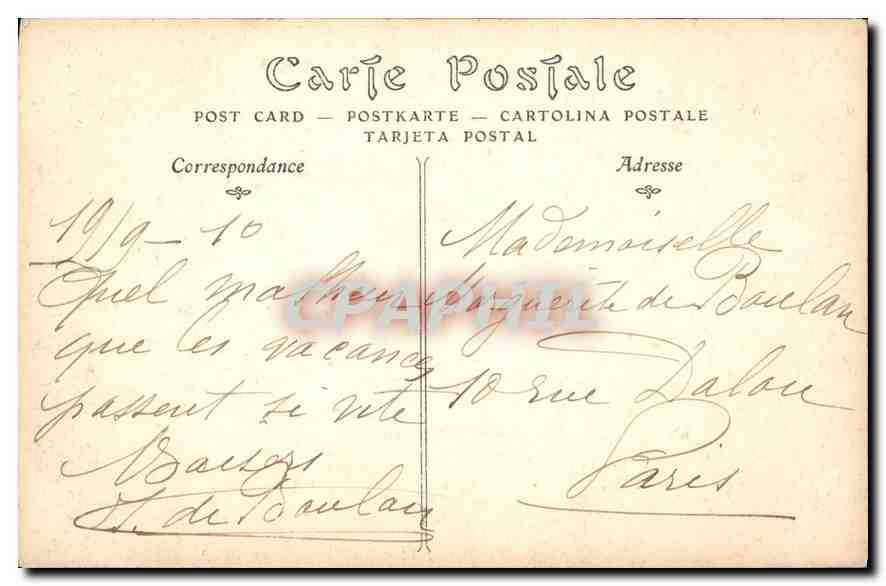 Carte Postale
POST CARD — POSTKARTE — CARTOLINA POSTALE
TARJETA POSTAL
Correspondance
19/9 - 10
Quel malheur
que les vacances
passent si vite
Baisers
H. de Boulan
Adresse
Mademoiselle
Marguerite de Boulan
10 rue Dalou
Paris
CPAPHIL